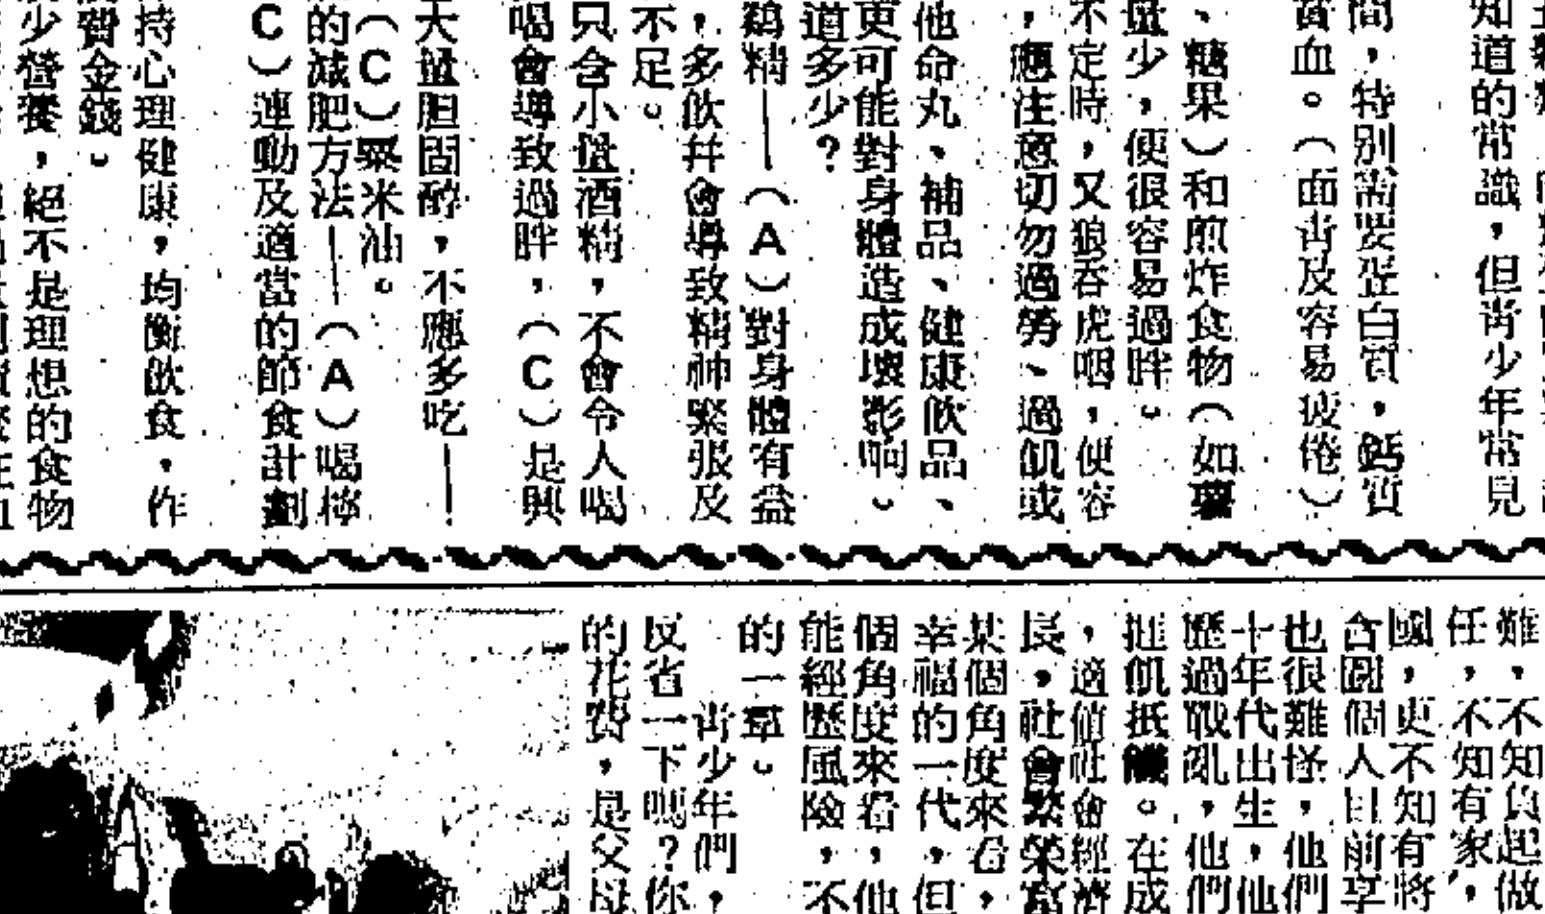 知道的常識，但青少年常見
間，特別需要蛋白質，鈣質
貧血。（面青及容易疲倦）
、糖果）和煎炸食物（如薯
量少，便很容易過胖。
不定時，又狼吞虎咽，便容
，應注意切勿過勞、過飢或
他命丸、補品、健康飲品、
更可能對身體造成壞影响。
道多少？
鷄精——（A）對身體有益
，多飲幷會導致精神緊張及
不足。
只含小量酒精，不會令人喝
喝會導致過胖，（C）是興
大量胆固醇，不應多吃——
（C）粟米油。
的減肥方法——（A）喝檸
C）運動及適當的節食計劃
持心理健康，均衡飲食，作
費金錢。
少營養，絕不是理想的食物
難，不知負起做
任，不知有家，
國，更不知有將
含圖個人目前享
也很難怪，他們
十年代出生，他
歷過戰亂，他們
捱飢抵餓。在成
，適值社會經濟
長，社會繁榮富
某個角度來看，
幸福的一代，但
個角度來看，他
能經歷風險，不
的一羣。
青少年們，
反省一下嗎？你
的花費，是父母